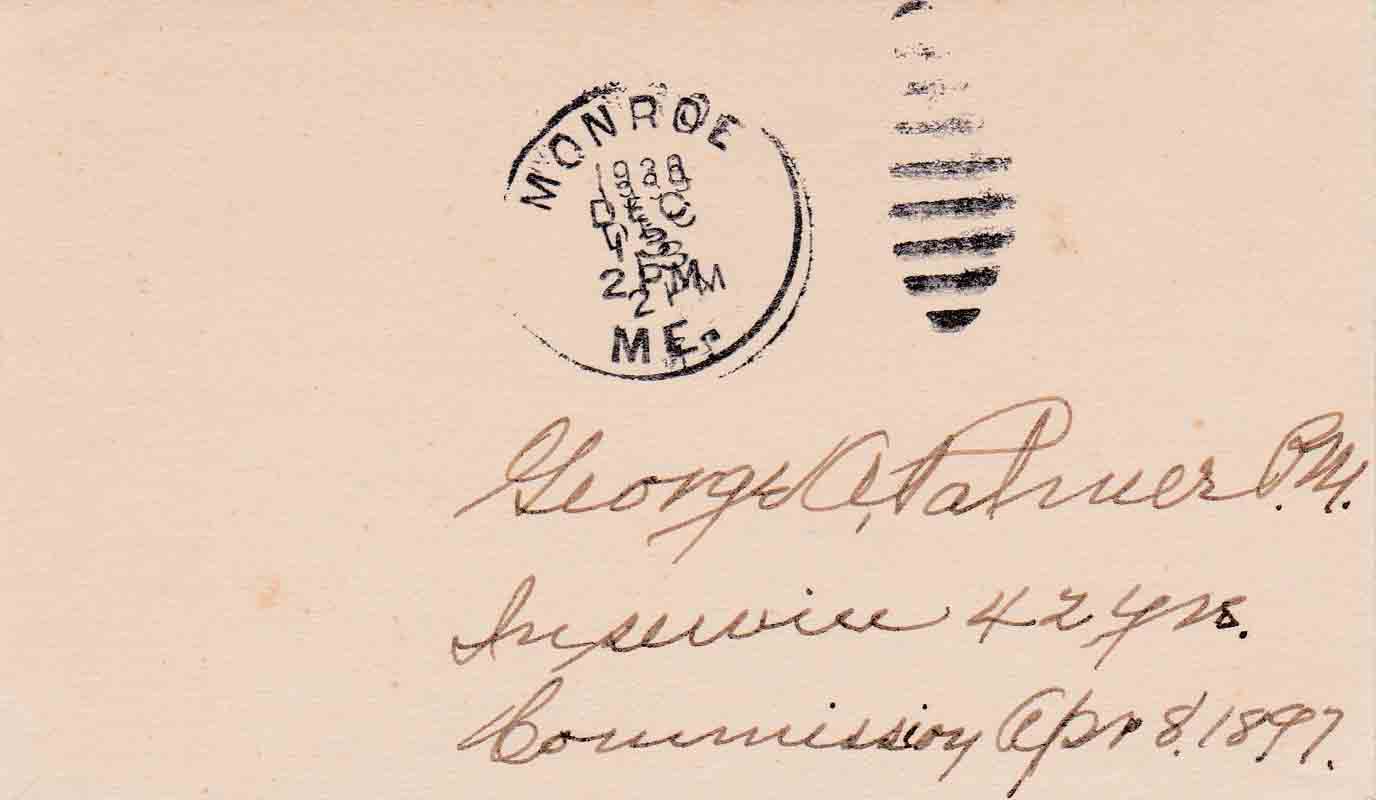 MONROE
1938
DEC
2 PM
ME.
George A. Palmer P.M.
In service 42 yrs.
Commission Apr 8, 1897.